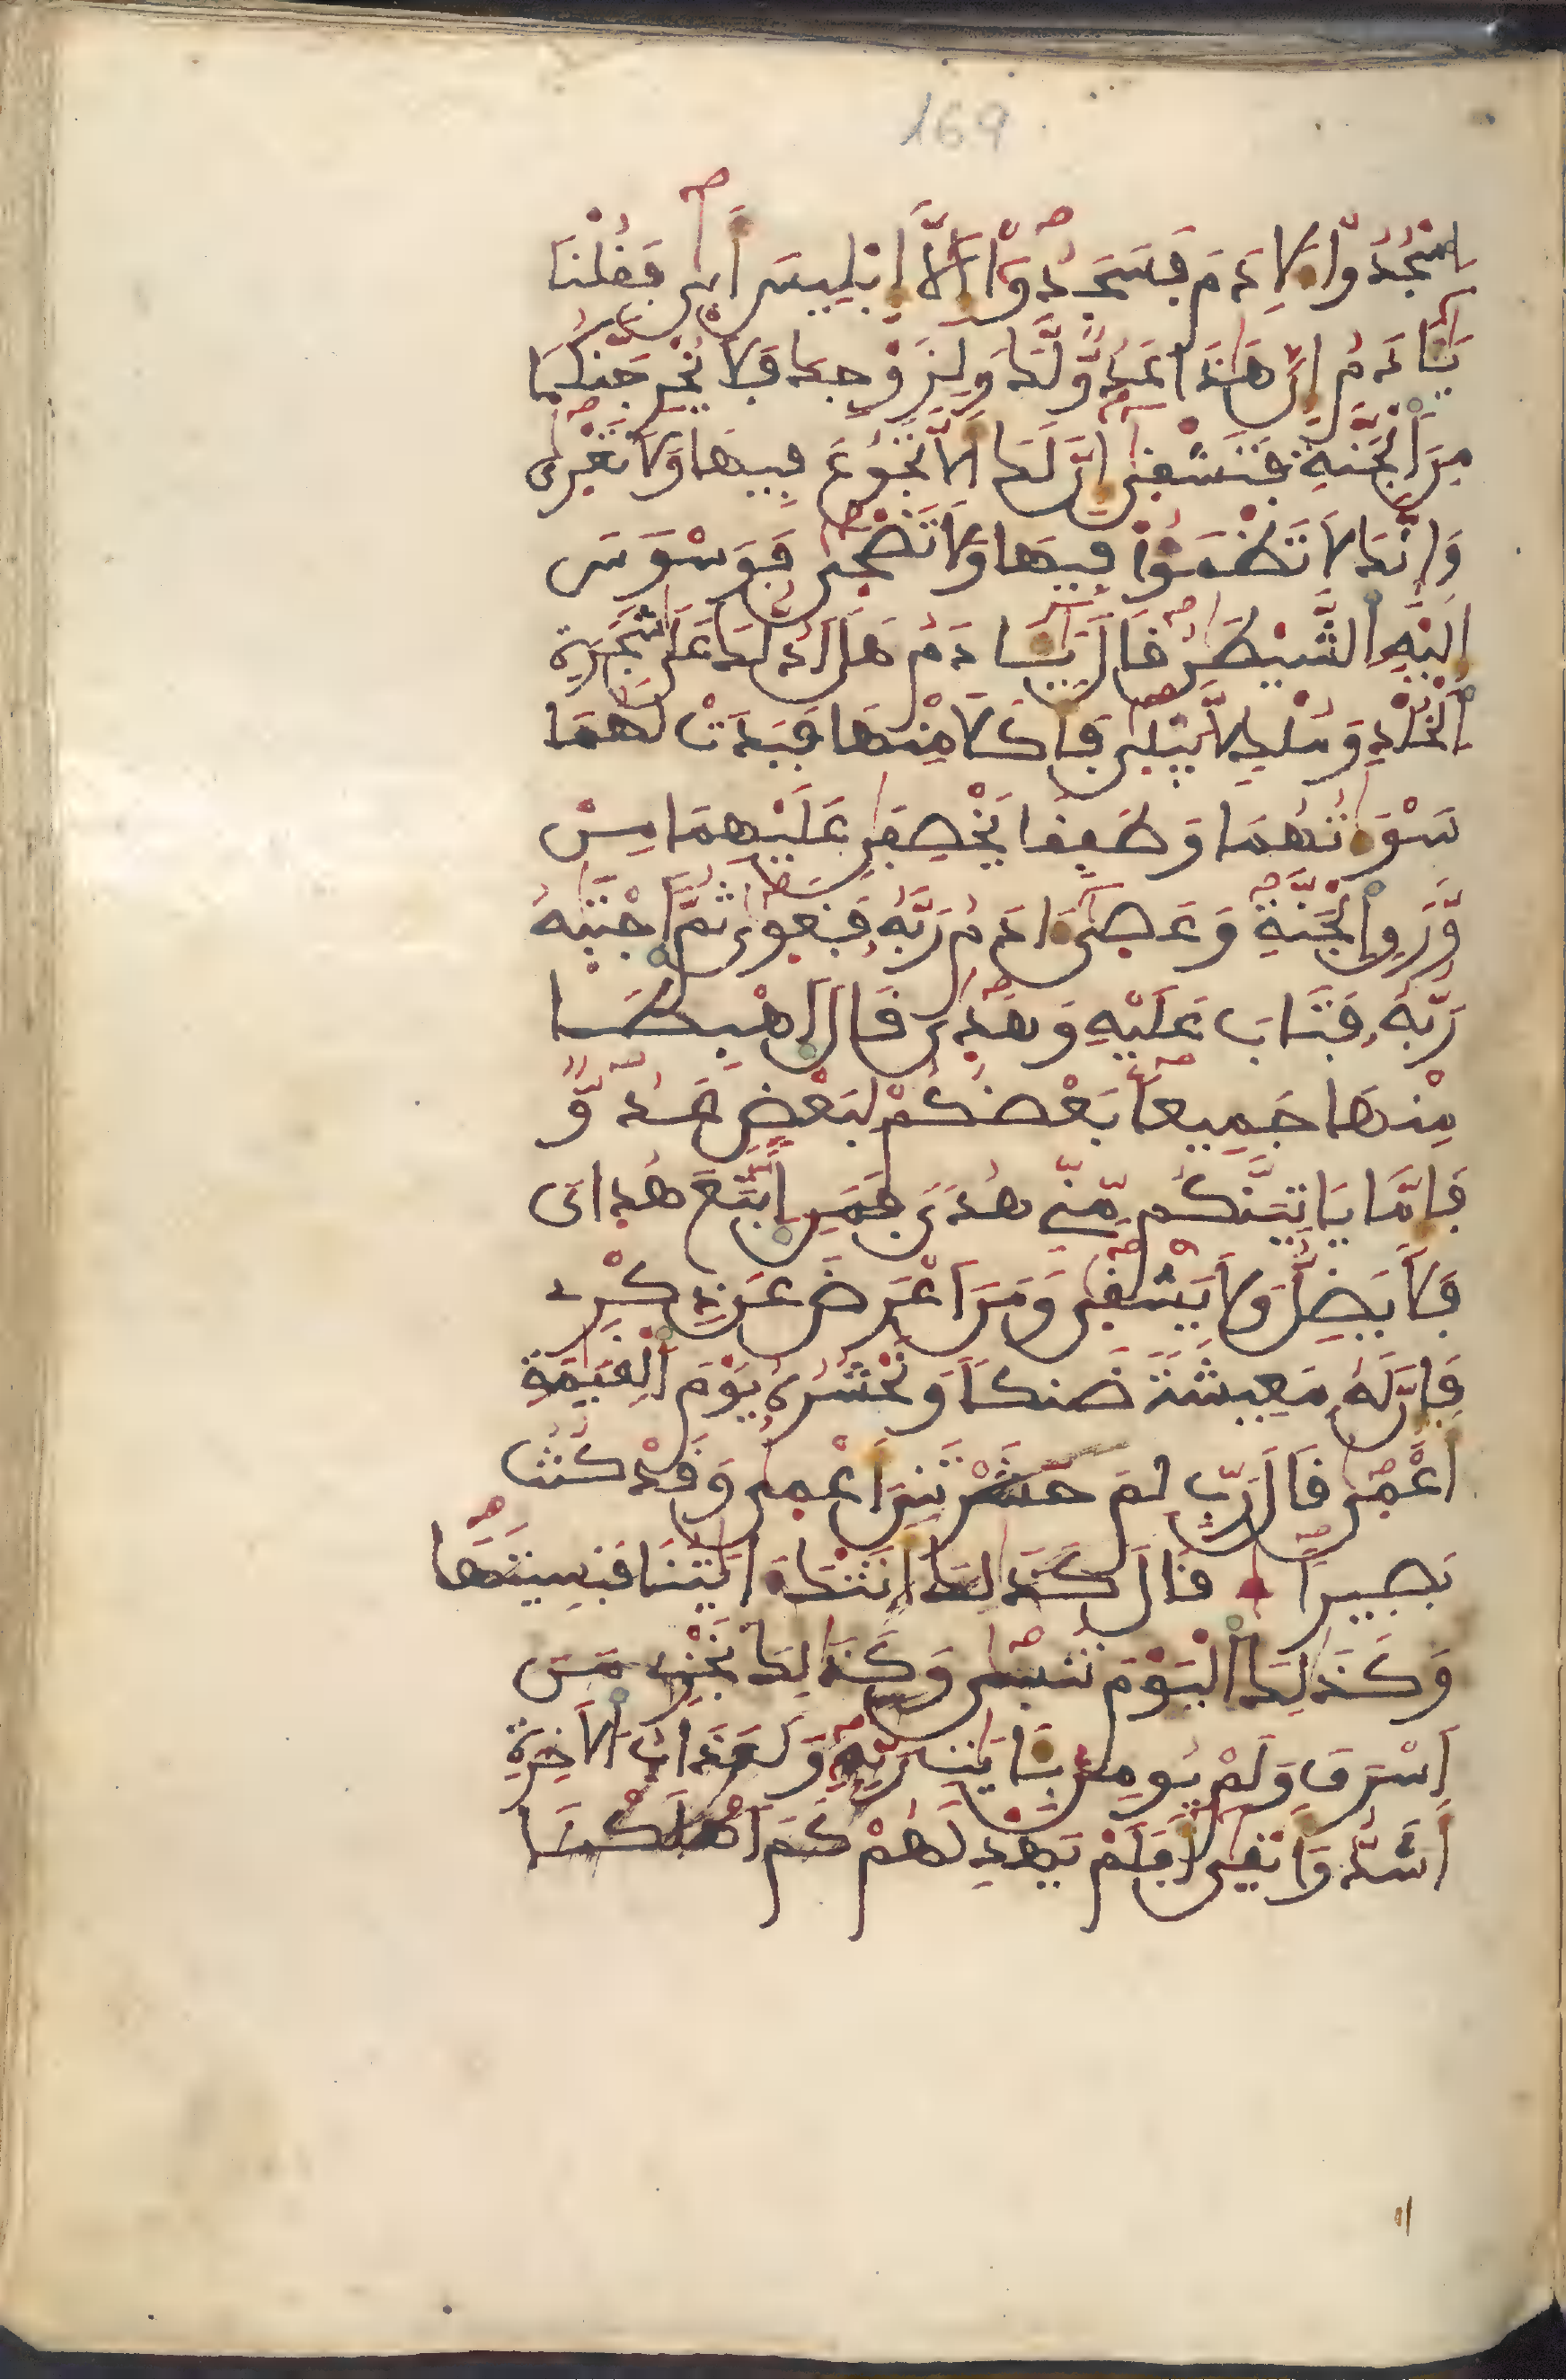 169
اسْجُدُواْ لِأَدَمَ فَسَجَدُوٓاْ إِلَّآ إِبْلِيسَ أَبِىٰ فَقُلْنَا
يَـٰٓـَٔادَمُ إِنَّ هَـٰذَا عَدُوٌّ لَّكَ وَلِزَوْجِكَ فَلَا يُخْرِجَنَّكُمَا
مِنَ ٱلْجَنَّةِ فَتَشْقِىٰٓ إِنَّ لَكَ أَلَّا تَجُوعَ فِيهَا وَلَا تَعْرِىٰ
وَإِنَّكَ لَا تَظْمَؤُاْ فِيهَا وَلَا تَضْحِىٰ فَوَسْوَسَ
إِلَيْهِ ٱلشَّيْطَـٰنُ قَالَ يَـٰٓـَٔادَمُ هَلْ أَدُلُّكَ عَلَىٰ شَجَرَةِ
ٱلْخُلْدِ وَمُلْكٍ لَّا يَبْلِىٰ فَأَكَلَا مِنْهَا فَبَدَتْ لَهُمَا
سَوْءَٰتُهُمَا وَطَفِقَا يَخْصِفَـٰنِ عَلَيْهِمَا مِنْ
وَّرَقِ ٱلْجَنَّةِ وَعَصِىٰٓ ءَادَمُ رَبَّهُۥ فَغَوِىٰ ثُمَّ ٱجْتَبَـٰهُ
رَبُّهُۥ فَتَابَ عَلَيْهِ وَهَدِىٰ قَالَ ٱهْبِطَا
مِنْهَا جَمِيعاً بَعْضُكُمْ لِبَعْضٍ عَدُوٌّ
فَإِمَّا يَاتِيَنَّكُم مِّنِّے هُدىً فَمَنِ ٱتَّبَعَ هُدَاىَ
فَلَا يَضِلُّ وَلَا يَشْقِىٰ وَمَنَ اَعْرَضَ عَن ذِكْرِے
فَإِنَّ لَهُۥ مَعِيشَةً ضَنكاً وَنَحْشُرُهُۥ يَوْمَ ٱلْقِيَـٰمَةِ
أَعْمِىٰ قَالَ رَبِّ لِمَ حَشَرْتَنِىَ أَعْمِىٰ وَقَدْ كُنتُ
بَصِيراً قَالَ كَذَٰلِكَ أَتَتْكَ ءَايَـٰتُنَا فَنَسِيتَهَا
وَكَذَٰلِكَ ٱلْيَوْمَ تُنسِىٰ وَكَذَٰلِكَ نَجْزِے مَنَ
اَسْرَفَ وَلَمْ يُومِنۢ بِـَٔايَـٰتِ رَبِّهِۦ وَلَعَذَابُ ٱلْأَخِرَةِ
أَشَدُّ وَأَبْقِىٰٓ أَفَلَمْ يَهْدِ لَهُمْ كَمَ اَهْلَكْنَا